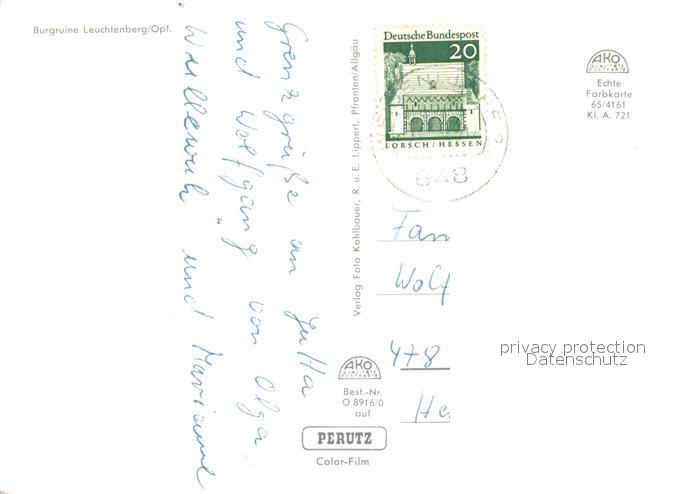 Burgruine Leuchtenberg/Opf.
Grenzgrüße an Jutta
und Wolfgang von Olga
und Marianne
Verlag Foto Kohlbauer, R. u. E. Lipperl, Pfronten/Allgäu
Deutsche Bundespost
20
LORSCH/HESSEN
848
AKO
Echte
Farbkarte
65/4161
Kl. A. 721
Fam
Wolf
478
He
AKO
Best.-Nr.
O 8916/0
auf
PERUTZ
Color-Film
privacy protection
Datenschutz